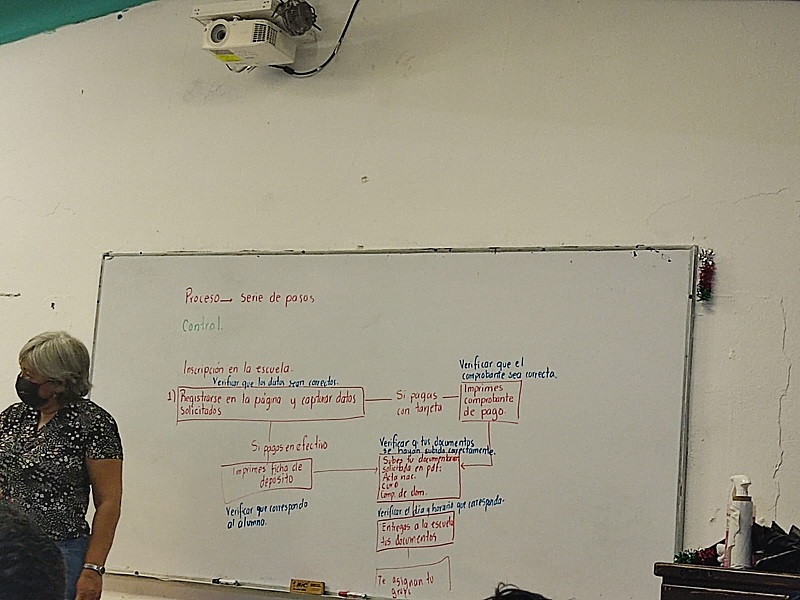 Proceso → serie de pasos
Control.
Inscripción en la escuela.
Verificar que los datos sean correctos.
1) Registrarse en la página y capturar datos
solicitados
Si pagas
con tarjeta
Verificar que el
comprobante sea correcta.
Imprimes
comprobante
de pago.
Si pagas en efectivo
Imprimes ficha de
depósito
Verificar que corresponda
al alumno.
Verificar q tus documentos
se hayan subido correctamente.
Subes tu documentacion
solicitada en pdf:
Acta nac.
CURP
Comp. de dom.
Verificar el día y horario que corresponda.
Entregas a la escuela
tus documentos
Te asignan tu
grupo
BIC